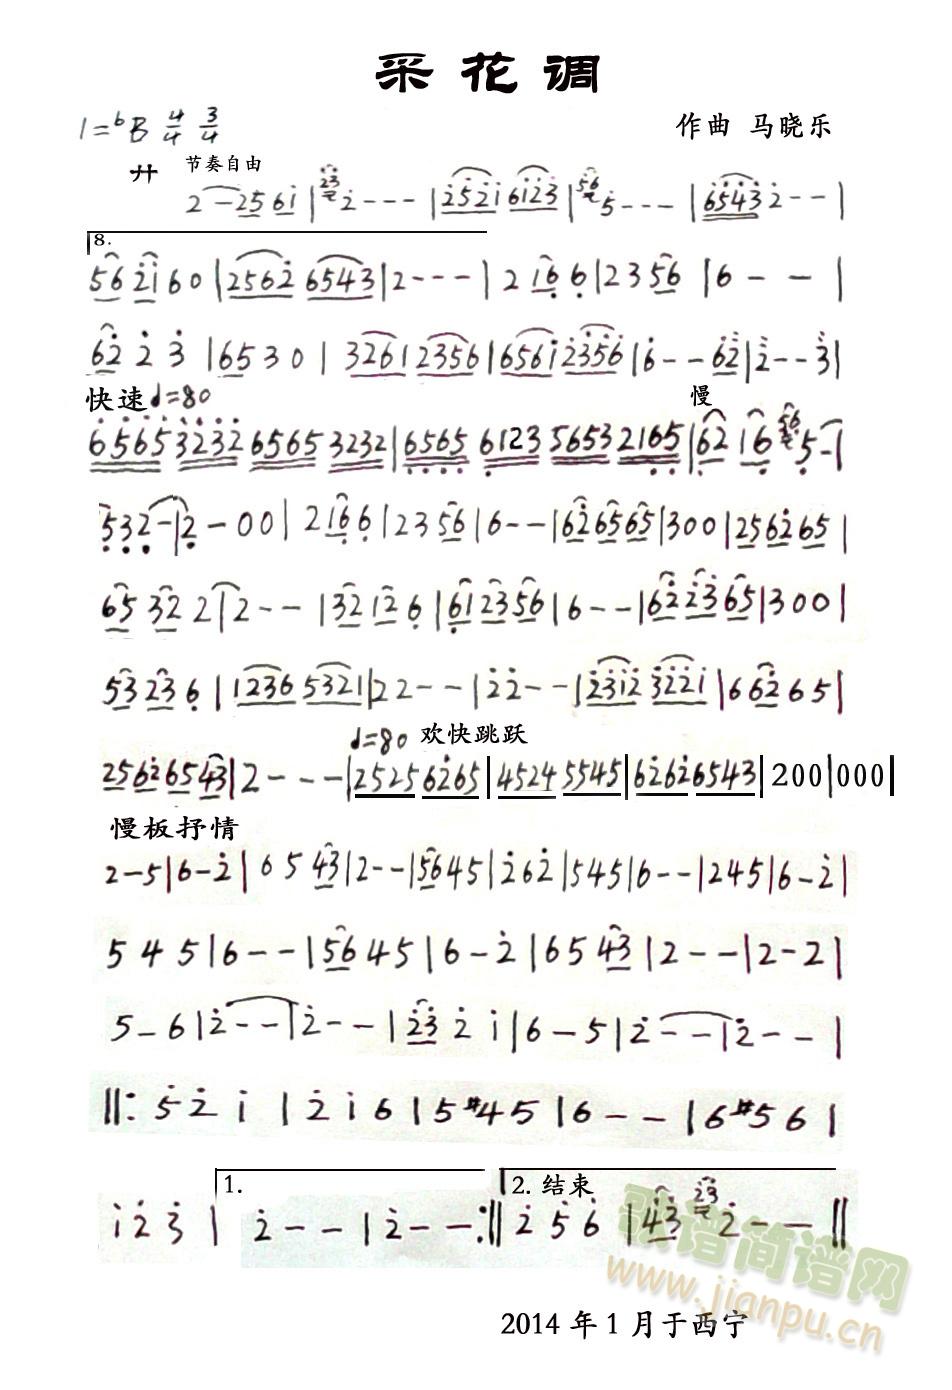 采花调
1=bB 4/4 3/4
作曲 马晓乐
サ 节奏自由
2 — 25 61 | 23 2 - - - | 2521 6123 | 56 5 - - - | 6543 2 - - |
8.
56 21 6 0 | 2562 6543 | 2 - - - | 2 16 6 | 2 3 56 | 6 - - |
62 2 3 | 6 5 3 0 | 3261 2356 | 6561 2356 | 6 - - 62 | 2 - - 3 |
快速 ♩=80 慢
6565 3232 6565 3232 | 6565 6123 5653 2165 | 62 16 56 5 - |
5 3 2 - | 2 - 0 0 | 2 16 6 | 2 3 56 | 6 - - | 62 65 65 | 3 0 0 | 25 62 65 |
65 32 2 | 2 - - | 32 12 6 | 61 23 56 | 6 - - | 62 23 65 | 3 0 0 |
53 23 6 | 1236 5321 | 2 2 - - | 2 2 - - | 2312 3221 | 6 62 6 5 |
♩=80 欢快跳跃
25 62 65 43 | 2 - - - | 2525 6265 | 4524 5545 | 6262 6543 | 200 | 000 |
慢板抒情
2 - 5 | 6 - 2 | 6 5 43 | 2 - - | 56 4 5 | 2 6 2 | 5 4 5 | 6 - - | 2 4 5 | 6 - 2 |
5 4 5 | 6 - - | 56 4 5 | 6 - 2 | 6 5 43 | 2 - - | 2 - 2 |
5 - 6 | 2 - - | 2 - - | 23 2 1 | 6 - 5 | 2 - - | 2 - - |
‖: 5 2 1 | 2 1 6 | 5 #4 5 | 6 - - | 6 #5 6 |
1 2 3 | 1. 2 - - | 2 - - :‖ 2. 结束 2 5 6 | 43 23 2 - - ‖
歌谱简谱网
www.jianpu.cn
2014 年 1 月于西宁